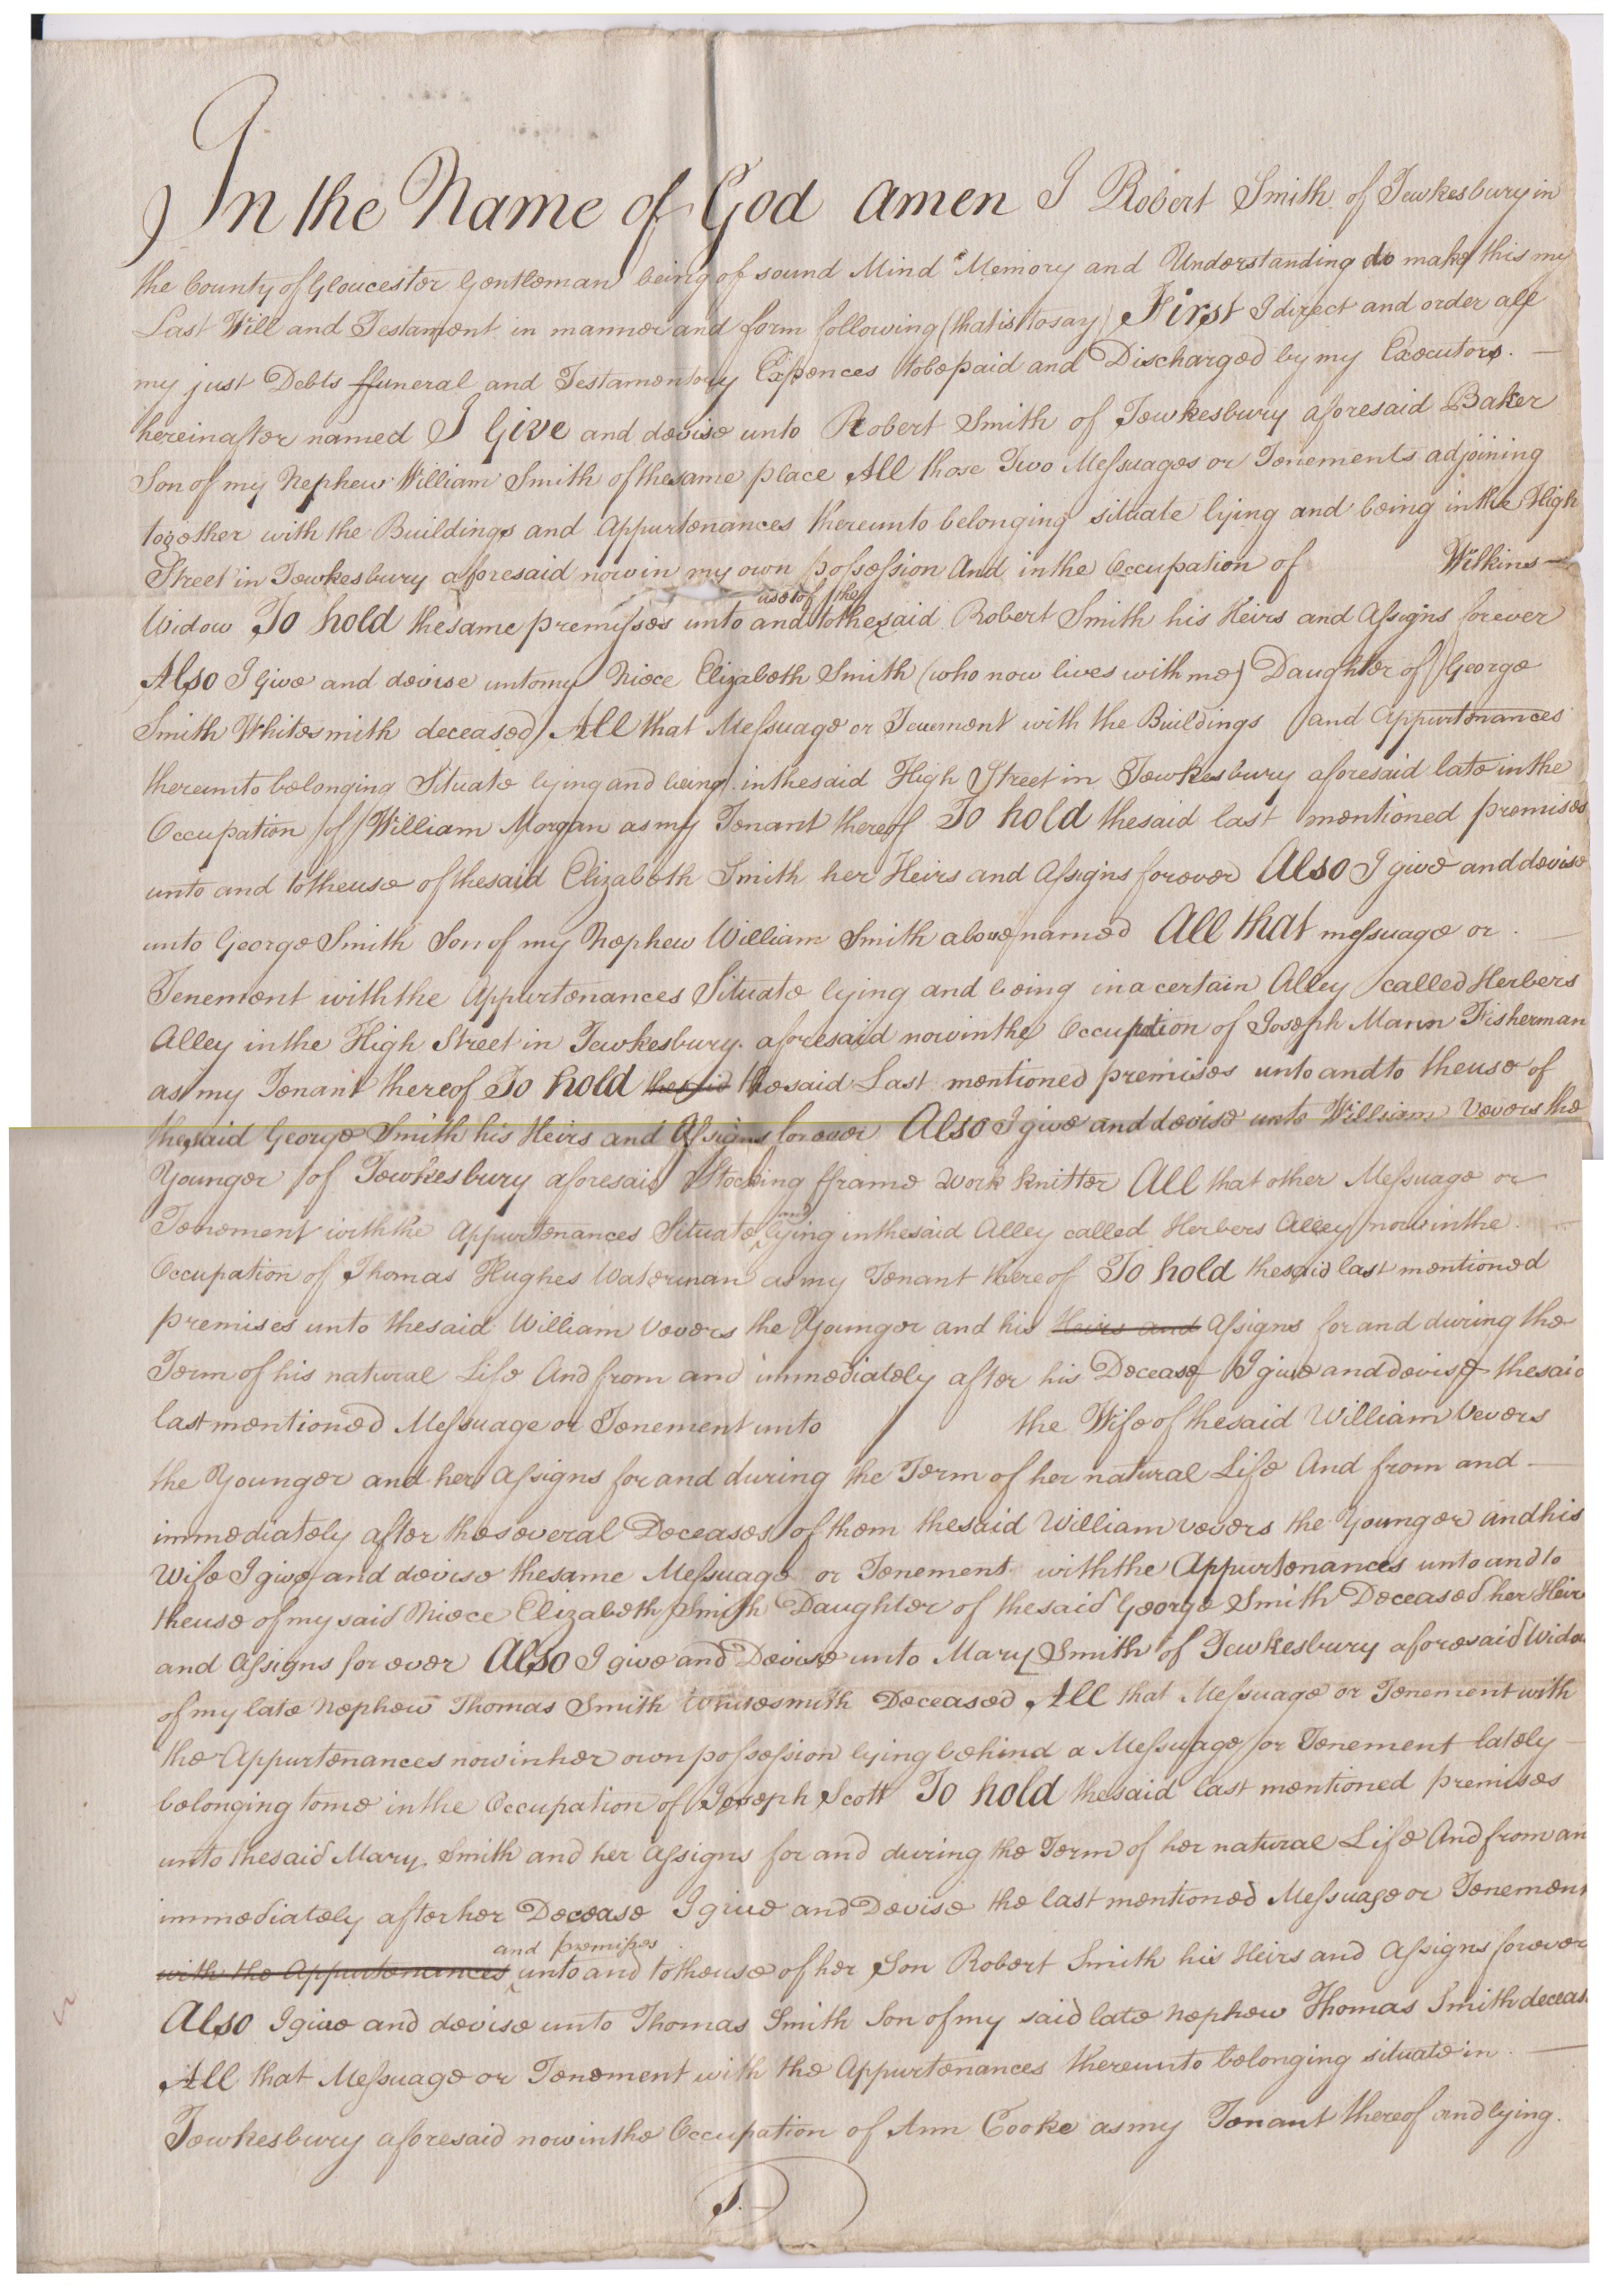 In the Name of God Amen I Robert Smith of Tewkesbury in
the County of Gloucester Gentleman being of sound Mind Memory and Understanding do make this my
Last Will and Testament in manner and form following (that is to say) First I direct and order all
my just Debts ffuneral and Testamentory Expences to be paid and Discharged by my Executors. —
hereinafter named I Give and devise unto Robert Smith of Tewkesbury aforesaid Baker
Son of my Nephew William Smith of the same place All those Two Messuages or Tenements adjoining
together with the Buildings and Appurtenances thereunto belonging situate lying and being in the High
Street in Tewkesbury aforesaid now in my own possession And in the Occupation of Wilkins —
use of the
Widow To hold the same premisses unto and to the said Robert Smith his Heirs and Assigns forever
Also I Give and devise unto my Niece Elizabeth Smith (who now lives with me) Daughter of George
Smith Whitesmith deceased All that Messuage or Tenement with the Buildings and Appurtenances
thereunto belonging Situate lying and being in the said High Street in Tewkesbury aforesaid late in the
Occupation of William Morgan as my Tenant thereof To hold the said last mentioned premises
unto and to the use of the said Elizabeth Smith her Heirs and Assigns forever Also I give and devise
unto George Smith Son of my Nephew William Smith above named All that messuage or . —
Tenement with the Appurtenances Situate lying and being in a certain Alley called Herbers
Alley in the High Street in Tewkesbury aforesaid now in the Occupation of Joseph Mann Fisherman
as my Tenant thereof To hold the said the said Last mentioned premises unto and to the use of
the said George Smith his Heirs and Assigns for ever Also I give and devise unto William Vevers the
Younger of Tewkesbury aforesaid Stocking fframe Work Knitter All that other Messuage or
and
Tenement with the Appurtenances Situate lying in the said Alley called Herbers Alley now in the .
Occupation of Thomas Hughes Waterman as my Tenant thereof To hold the said last mentioned
premises unto the said William Vevers the Younger and his Heirs and Assigns for and during the
Term of his natural Life And from and immediately after his Decease I give and devise the said
last mentioned Messuage or Tenement unto / the Wife of the said William Vevers
the Younger and her Assigns for and during the Term of her natural Life And from and —
immediately after the several Deceases of them the said William Vevers the Younger and his
Wife I give and devise the same Messuage or Tenement with the Appurtenances unto and to
the use of my said Niece Elizabeth Smith Daughter of the said George Smith Deceased her Heir
and Assigns for ever Also I give and Devise unto Mary Smith of Tewkesbury aforesaid Wido
of my late Nephew Thomas Smith Whitesmith Deceased All that Messuage or Tenement with
the Appurtenances now in her own possession lying behind a Messuage or Tenement lately —
belonging to me in the Occupation of Joseph Scott To hold the said last mentioned premises
unto the said Mary Smith and her Assigns for and during the Term of her natural Life And from an
immediately after her Decease I give and Devise the last mentioned Messuage or Tenement
and premisses
with the Appurtenances unto and to the use of her Son Robert Smith his Heirs and Assigns forever
Also I give and devise unto Thomas Smith Son of my said late Nephew Thomas Smith deceas
All that Messuage or Tenement with the Appurtenances thereunto belonging situate in . —
Tewkesbury aforesaid now in the Occupation of Ann Cooke as my Tenant thereof and lying.
1.